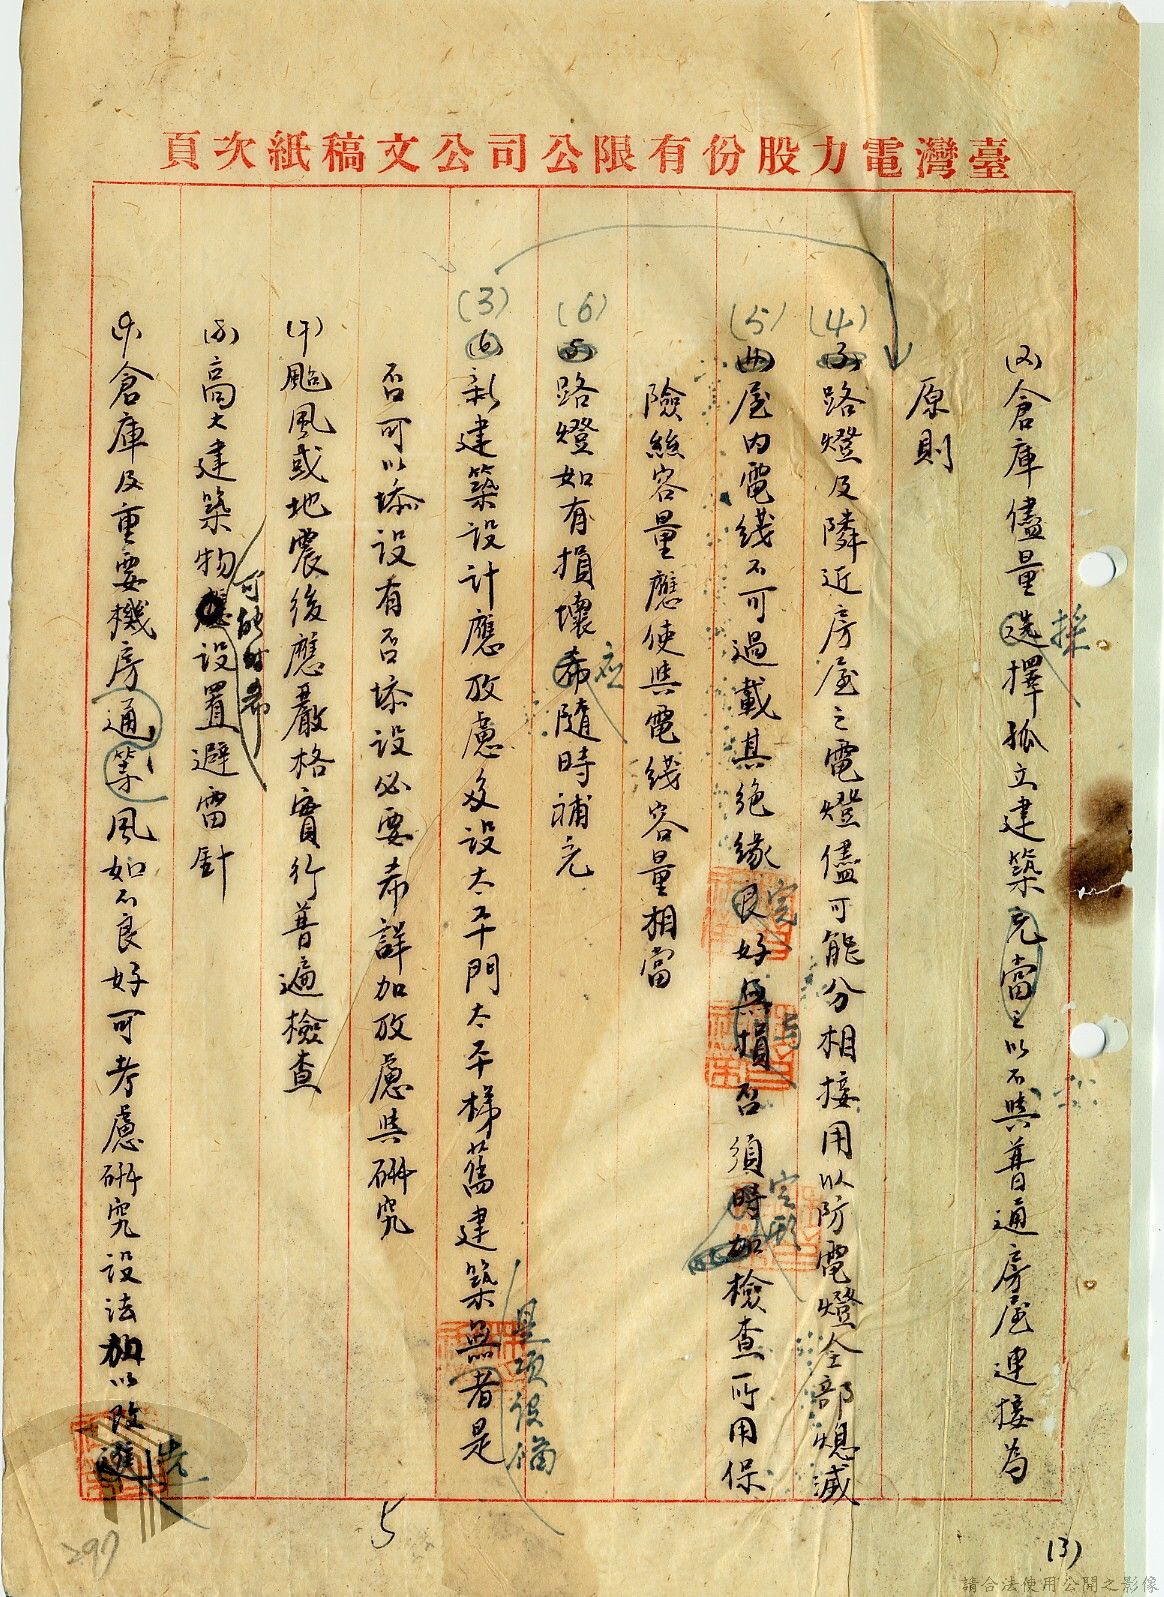 臺灣電力股份有限公司公文稿紙次頁
倉庫儘量选擇孤立建築充當之以不與普通房屋連接為
採
原則
(4)路燈及隣近房屋之電燈儘可能分相接用以防電燈全部熄滅
(5)屋内電綫不可過載其絶緣良好無損否須時加檢查所用保
完
与
險絲容量應使與電綫容量相當
(6)路燈如有損壞希随時補充
应
(3)新建築設計應攷慮多設太平門太平梯舊建築無者是
是項設備
否可以添設有否添設必要希詳加攷慮與研究
颱風或地震後應嚴格實行普遍檢查
高大建築物應設置避雷針
可能時希
倉庫及重要機房通等風如不良好可考慮研究設法加以改進
5
297
(3)
請合法使用公開之影像